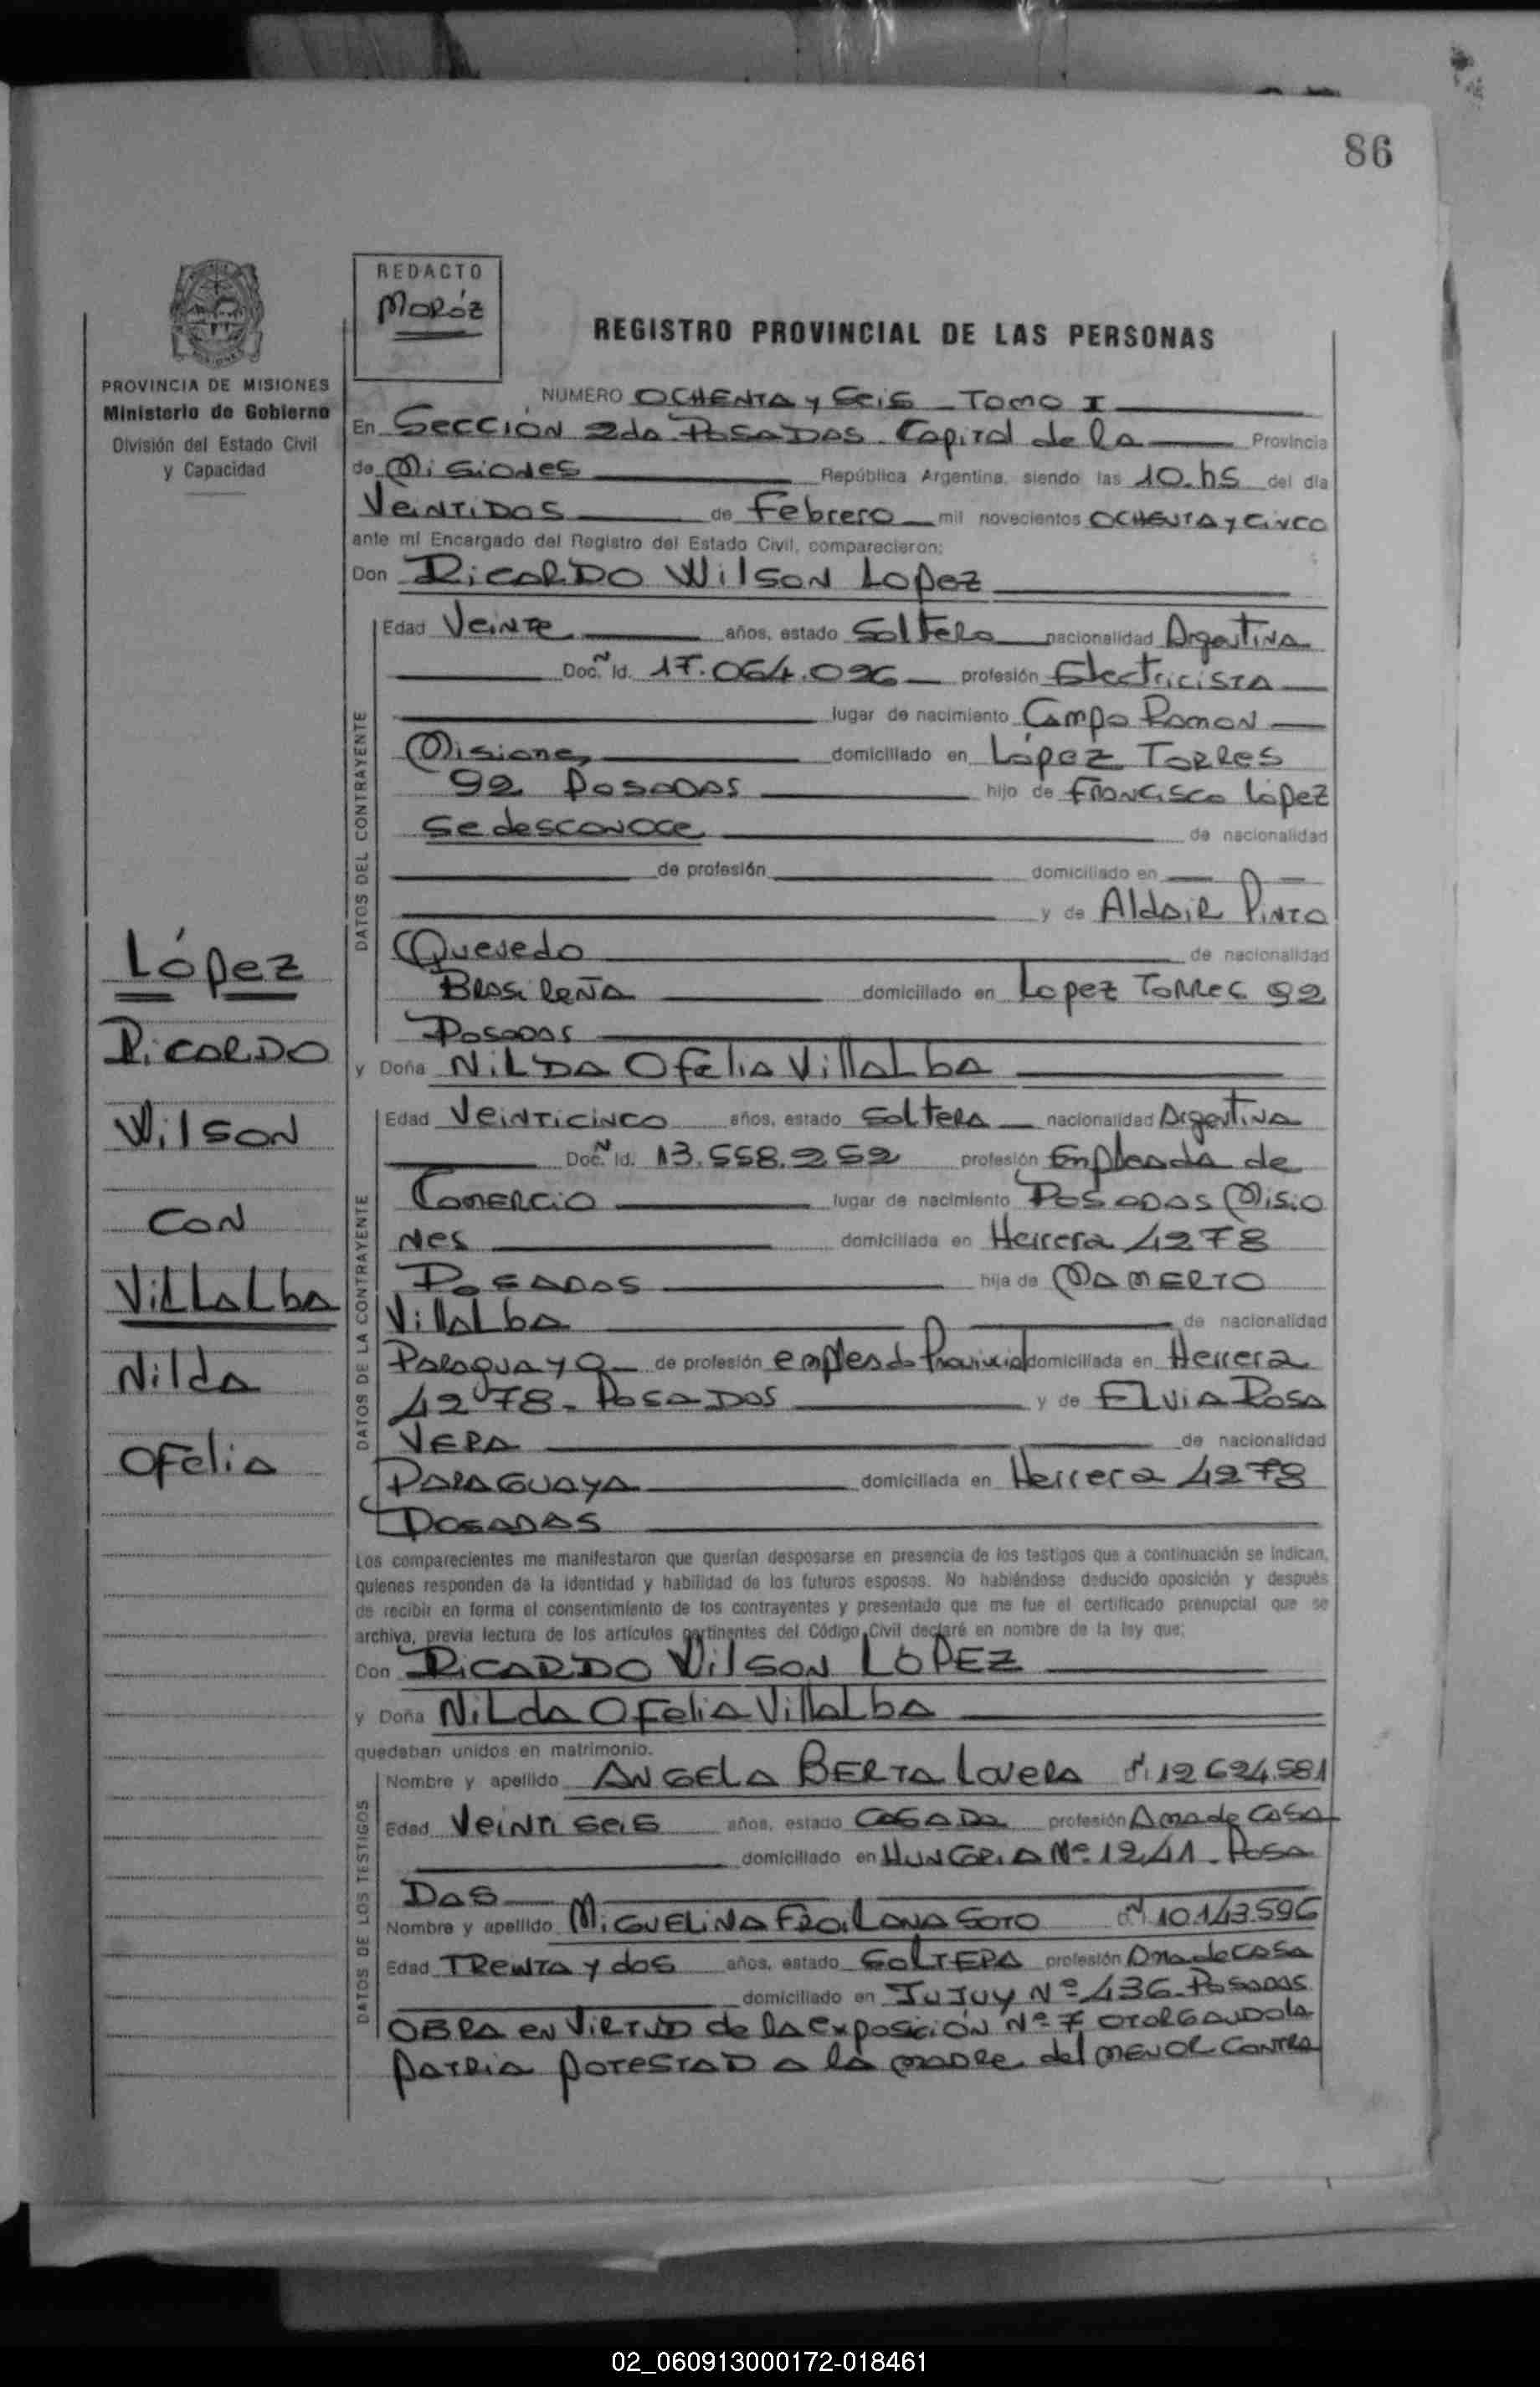 86
REDACTO
Moróz
REGISTRO PROVINCIAL DE LAS PERSONAS
PROVINCIA DE MISIONES
Ministerio de Gobierno
División del Estado Civil
y Capacidad
NUMERO OCHENTA y Seis - Tomo I
En Sección 2da Posadas. Capital de la Provincia
de Misiones República Argentina, siendo las 10.hs del día
Veintidos de Febrero mil novecientos OCHENTA y Cinco
ante mí Encargado del Registro del Estado Civil, comparecieron:
Don Ricardo Wilson Lopez
Edad Veinte años, estado Soltero nacionalidad Argentina
Doc. N Id. 17.064.096 profesión Electricista
lugar de nacimiento Campo Ramon
Misiones domiciliado en López Torres
92 Posadas hijo de Francisco López
Se desconoce de nacionalidad
de profesión domiciliado en
y de Aldair Pinto
Quevedo de nacionalidad
Brasileña domiciliado en Lopez Torres 92
Posadas
y Doña Nilda Ofelia Villalba
Edad Veinticinco años, estado Soltera nacionalidad Argentina
Doc. N Id. 13.558.252 profesión Empleada de
Comercio lugar de nacimiento Posadas Misio
nes domiciliada en Herrera 4278
Posadas hija de Mamerto
Villalba de nacionalidad
Paraguaya de profesión empleado Provincial domiciliada en Herrera
4278 - Posadas y de Elvia Rosa
Vera de nacionalidad
Paraguaya domiciliada en Herrera 4278
Posadas
DATOS DEL CONTRAYENTE
DATOS DE LA CONTRAYENTE
López
Ricardo
Wilson
con
Villalba
Nilda
Ofelia
Los comparecientes me manifestaron que querían desposarse en presencia de los testigos que a continuación se indican,
quienes responden de la identidad y habilidad de los futuros esposos. No habiéndose deducido oposición y después
de recibir en forma el consentimiento de los contrayentes y presentado que me fue el certificado prenupcial que se
archiva, previa lectura de los artículos pertinentes del Código Civil declaré en nombre de la ley que:
Don Ricardo Wilson LOPEZ
y Doña Nilda Ofelia Villalba
quedaban unidos en matrimonio.
Nombre y apellido Angela Berta Lovera 12.624.581
Edad Veinti seis años, estado Casada profesión Ama de Casa
domiciliado en Hungria Nº 1241 - Posa
das
Nombre y apellido Miguelina Froilana Soto 10.143.596
Edad Treinta y dos años, estado Soltera profesión Ama de casa
domiciliado en Jujuy Nº 436 - Posadas
DATOS DE LOS TESTIGOS
Obra en Virtud de la exposición Nº 7 otorgando la
patria potestad a la madre del menor contra
02_060913000172-018461